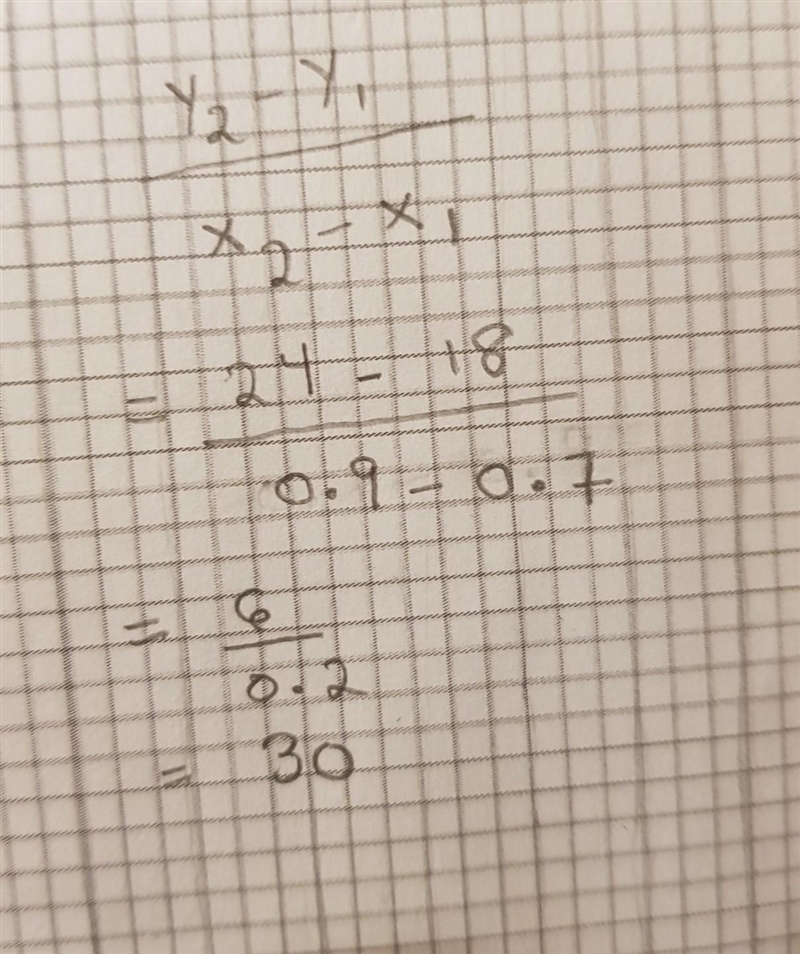 y₂ - y₁
x₂ - x₁
= 24 - 18
0.9 - 0.7
= 6
0.2
= 30